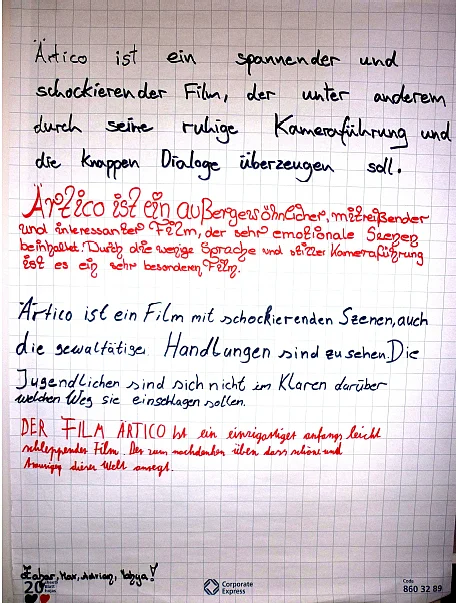 Ärtico ist ein spannender und
schockierender Film, der unter anderem
durch seine ruhige Kameraführung und
die knappen Dialoge überzeugen soll.
Ärtico ist ein außergewöhnlicher, mitreißender
und interessanter Film, der sehr emotionale Szenen
beinhaltet. Durch die wenige Sprache und stiller Kameraführung
ist es ein sehr besonderen Film.
Ärtico ist ein Film mit schockierenden Szenen, auch
die gewaltätige Handlungen sind zu sehen. Die
Jugendlichen sind sich nicht im Klaren darüber
welchen Weg sie einschlagen sollen.
DER FILM ÄRTICO Ist ein einzigartiger anfangs leicht
schleppender Film. Der zum nachdenken über dass schöne und
traurige dieser Welt anregt.
Max, Adrian, Yahya!
20
Corporate
Express
Code
860 32 89